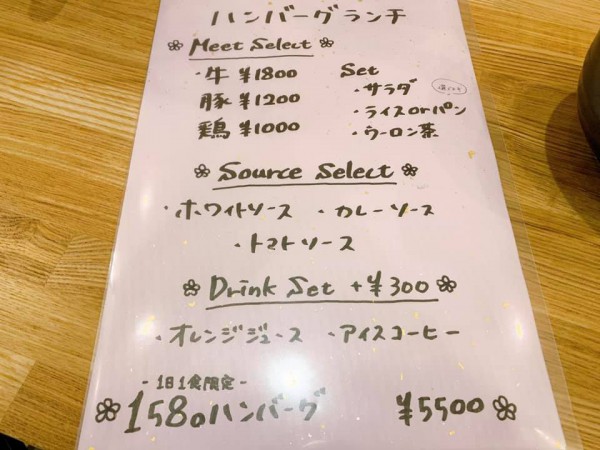 ハンバーグランチ
Meet Select
・牛 ¥1800
豚 ¥1200
鶏 ¥1000
Set
・サラダ
・ライスorパン
・ウーロン茶
Source Select
・ホワイトソース ・カレーソース
・トマトソース
Drink Set +¥300
・オレンジジュース ・アイスコーヒー
- 1日1食限定 -
1580ハンバーグ ¥5500